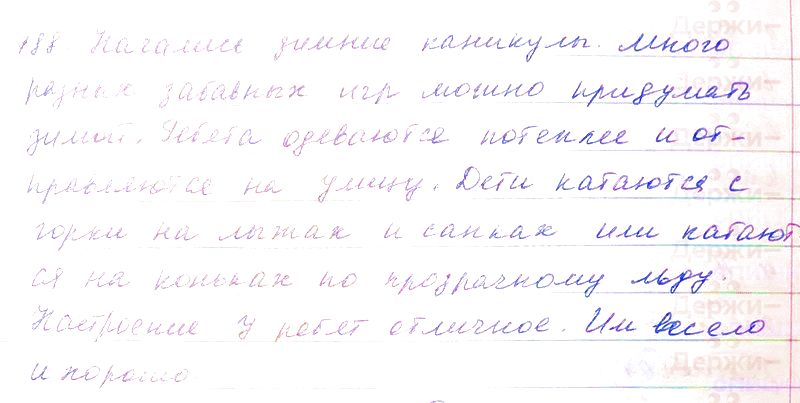 188. Начались зимние каникулы. Много
разных забавных игр можно придумать
зимой. Ребята одеваются потеплее и от-
правляются на улицу. Дети катаются с
горки на лыжах и санках или катают
ся на коньках по прозрачному льду.
Настроение у ребят отличное. Им весело
и хорошо
Держи-
Держи-
Держи-
Держи-